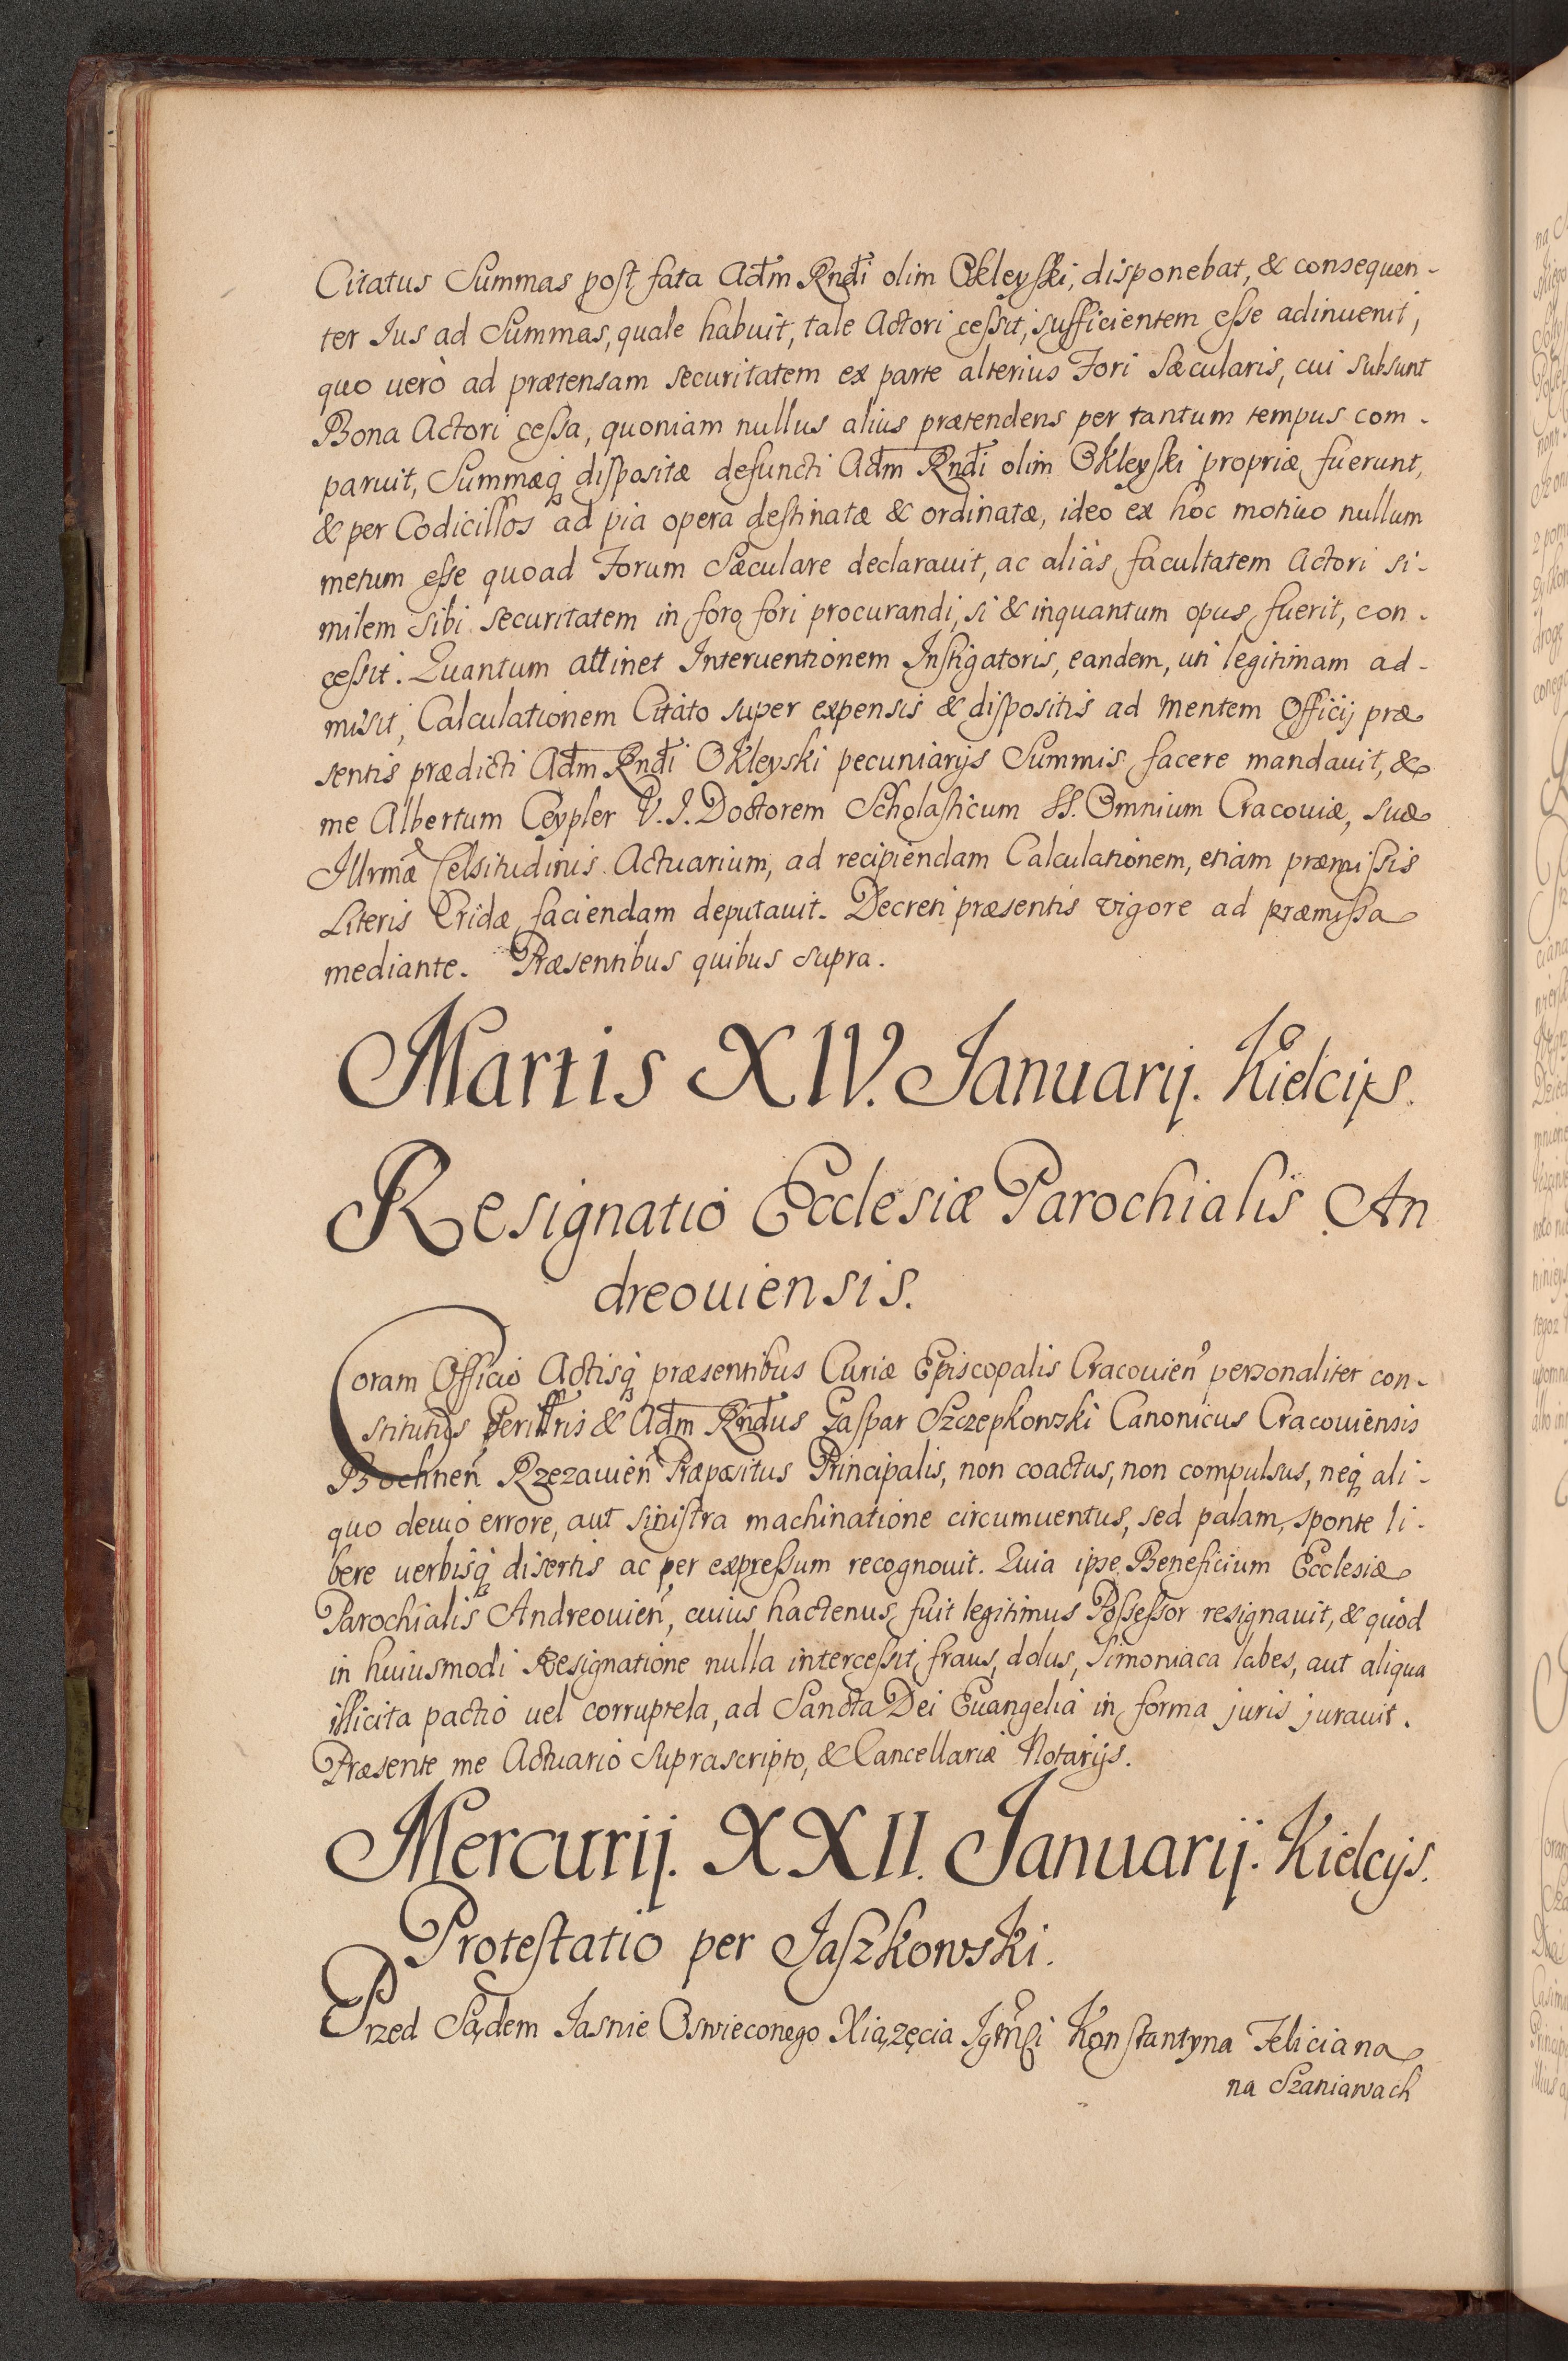 Citatus Summas post fata Adm Rndi olim Okleyski, disponebat, & consequen-
ter Ius ad Summas, quale habuit, tale Actori cessit, sufficientem esse adinuenit,
quo uerò ad prætensam securitatem ex parte alterius Fori Sæcularis, cui subsunt
Bona Actori cessa, quoniam nullus alius prætendens per tantum tempus com-
paruit, Summæq dispositæ defuncti Adm Rndi olim Okleyski propriæ fuerunt,
& per Codicillos ad pia opera destinatæ & ordinatæ, ideo ex hoc motiuo nullum
metum esse quoad Forum Sæculare declarauit, ac aliàs facultatem Actori si-
milem sibi securitatem in foro fori procurandi, si & inquantum opus fuerit, con-
cessit. Quantum attinet Interuentionem Instigatoris, eandem, uti legitimam ad-
misit, Calculationem Citato super expensis & dispositis ad mentem Officij præ
sentis prædicti Adm Rndi Okleyski pecuniarijs Summis facere mandauit, &
me Albertum Ceypler V. I. Doctorem Scholasticum SS. Omnium Cracouiæ, suæ
Illrmæ Celsitudinis Actuarium, ad recipiendam Calculationem, etiam præmissis
Literis Cridæ faciendam deputauit. Decreti præsentis vigore ad præmissa
mediante. Præsentibus quibus supra.
Martis XIV. Ianuarij. Kielcijs.
Resignatio Ecclesiæ Parochialis An
dreouiensis.
Coram Officio Actisq præsentibus Curiæ Episcopalis Cracouien personaliter con-
stitutus Perillris & Adm Rndus Gaspar Szczepkowski Canonicus Cracouiensis
Bochnen Rzezauien Præpositus Principalis, non coactus, non compulsus, neq ali-
quo deuio errore, aut sinistra machinatione circumuentus, sed palam, sponte li-
bere uerbisq disertis ac per expressum recognouit. Quia ipse Beneficium Ecclesiæ
Parochialis Andreouien, cuius hactenus fuit legitimus Possessor resignauit, & quòd
in huiusmodi Resignatione nulla intercessit fraus, dolus, Simoniaca labes, aut aliqua
illicita pactio uel corruptela, ad Sancta Dei Euangelia in forma juris jurauit.
Præsente me Actuario suprascripto, & Cancellariæ Notarijs.
Mercurij. XXII. Ianuarij. Kielcijs.
Protestatio per Jaszkowski.
Przed Sądem Jasnie Oswieconego Xiążęcia Jgmści Konstantyna Feliciana
na Szaniawach